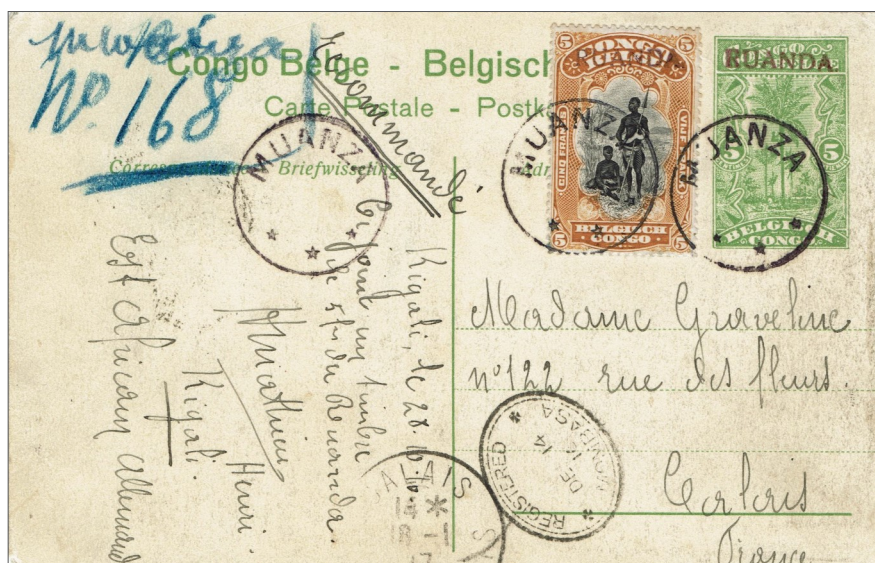 No. 168
Congo Belge - Belgisch
Carte Postale - Postka
Briefwisseling
Recommandé
MUANZA
5 CONGO 5
CINQ FRANCS
VIJF
5 BELGISCH 5
CONGO
MUANZA
RUANDA
5 5
BELGISCH
CONGO
MUANZA
Kigali, le 28.
Ci-joint un timbre
de 5 fr du Ruanda.
Mathieu
Henri.
Kigali.
Est Africain Allemand
Madame Graveline
n°122 rue des fleurs.
Calais
France
REGISTERED
DE 14
MOMBASA
CALAIS